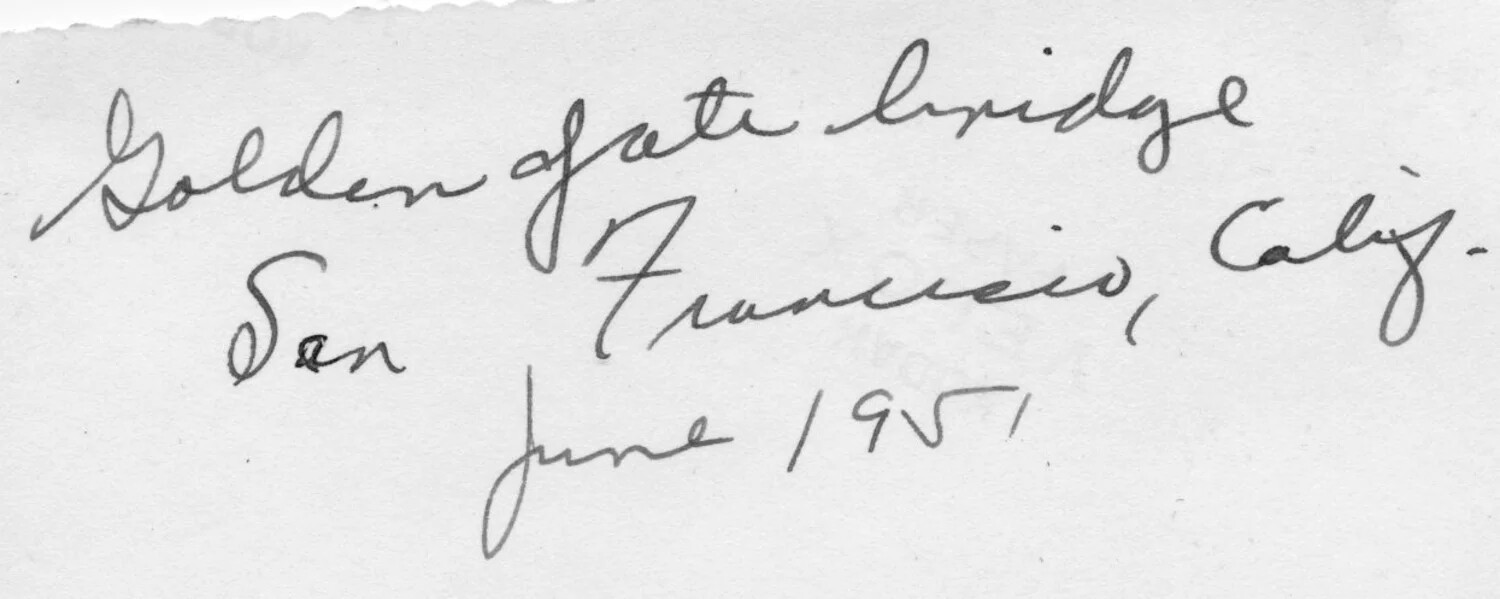 Golden gate bridge
San Francisco, Calif.
June 1951